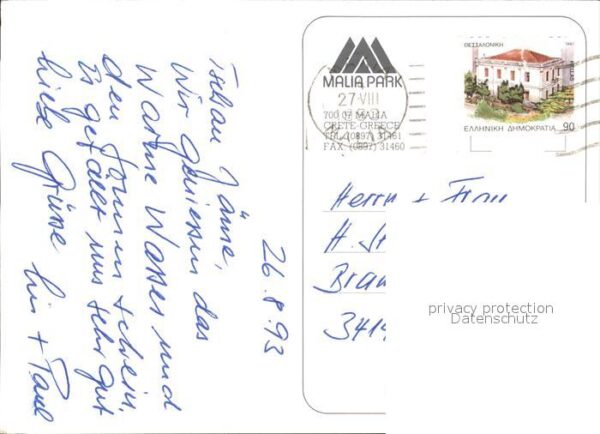 26.8.93
Tschau
Wir geniessen das
Warme Wasser und
den Sonnenschein.
Es gefällt uns sehr gut
Liebe Grüsse
+ Paul
MALIA PARK
27 VIII
700 07 MALIA
CRETE-GREECE
TEL (0897) 31461
FAX (0897) 31460
ΘΕΣΣΑΛΟΝΙΚΗ
ΕΛΛΗΝΙΚΗ ΔΗΜΟΚΡΑΤΙΑ 90
Herrn + Frau
H.
privacy protection
Datenschutz